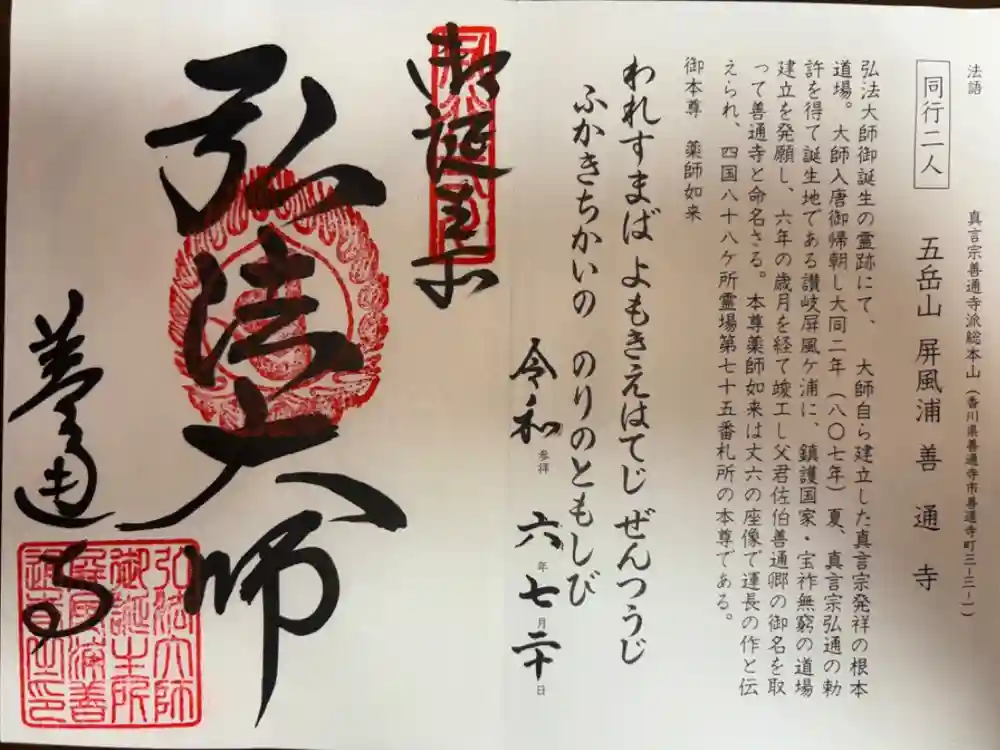 法語
真言宗善通寺派総本山（香川県善通寺市善通寺町三ー三ー一）
同行二人 五岳山 屏風浦 善通寺
弘法大師御誕生の霊跡にて、 大師自ら建立した真言宗発祥の根本
道場。大師入唐御帰朝し大同二年（八〇七年）夏、真言宗弘通の勅
許を得て誕生地である讃岐屏風ケ浦に、鎮護国家・宝祚無窮の道場
建立を発願し、六年の歳月を経て竣工し父君佐伯善通卿の御名を取
って善通寺と命名さる。本尊薬師如来は丈六の座像で運長の作と伝
えられ、四国八十八ケ所霊場第七十五番札所の本尊である。
御本尊 薬師如来
われすまば よもきえはてじ ぜんつうじ
ふかきちかいの のりのともしび
令和 参拝 六年 七月 二十日
御誕生所
弘法大師
善通寺
弘法大師
御誕生所
屏風浦善
通寺之印